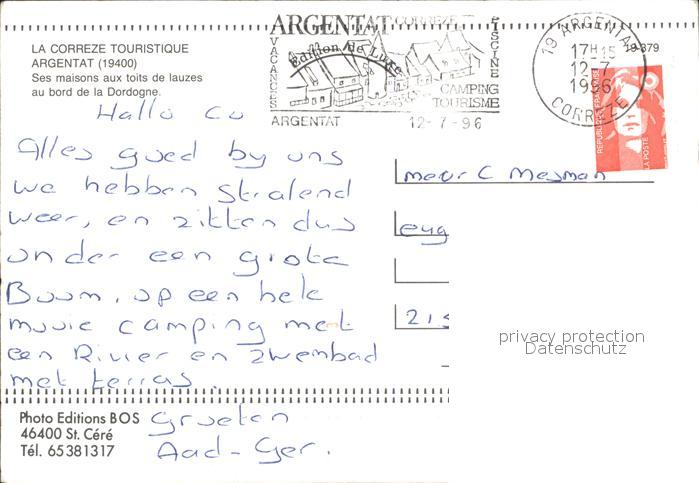 ARGENTAT CORREZE
VACANCES
PISCINE
Edition de Luxe
CAMPING
TOURISME
ARGENTAT
12-7-96
19 ARGENTAT
17H15
12-7
1996
CORREZE
19-879
REPUBLIQUE FRANCAISE
LA POSTE
LA CORREZE TOURISTIQUE
ARGENTAT (19400)
Ses maisons aux toits de lauzes
au bord de la Dordogne.
Hallo Co
Alles goed by ons
we hebben stralend
weer, en zitten dus
onder een grote
Boom, op een hele
mooie camping met
een Rivier en zwembad
met terras.
Groeten
Aad-Ger.
Meur C Mesman
eug
21
privacy protection
Datenschutz
Photo Editions BOS
46400 St. Céré
Tél. 65381317